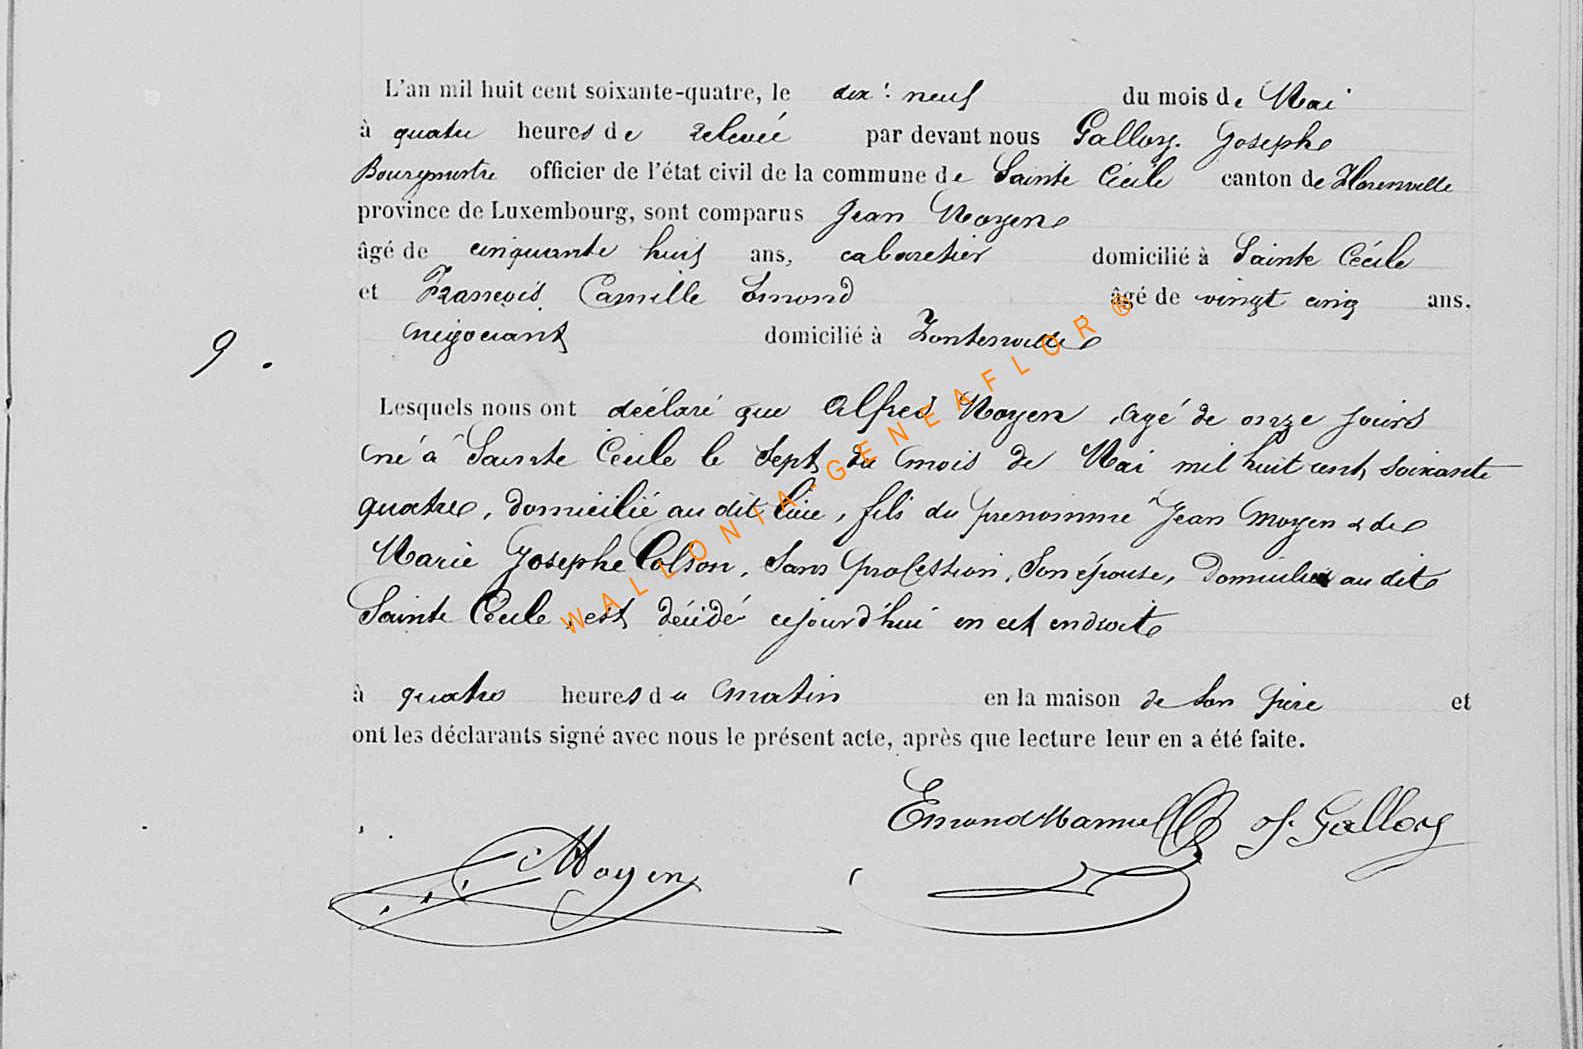 L'an mil huit cent soixante-quatre, le dix-neuf du mois de Mai
à quatre heures de relevée par devant nous Galloy. Josephe
Bourgmestre officier de l'état civil de la commune de Sainte Cécile canton de Florenville
province de Luxembourg, sont comparus Jean Moyen
âgé de cinquante huit ans, cabaretier domicilié à Sainte Cécile
et François Camille Emond âgé de vingt cinq ans.
négociant domicilié à Fontenoille
9.
Lesquels nous ont déclaré que Alfred Moyen, agé de onze jours
né à Sainte Cécile le Sept du mois de Mai mil huit cent soixante
quatre, domicilié au dit lieu, fils du prénommé Jean Moyen & de
Marie Josephe Colson, Sans profession, Son épouse, Domiciliés au dit
Sainte Cécile, est décédé cejourd'hui en cet endroit
à quatre heures du matin en la maison de Son père et
ont les déclarants signé avec nous le présent acte, après que lecture leur en a été faite.
Moyen
J. Galloy
WALLONIA-GENEAFLOR®